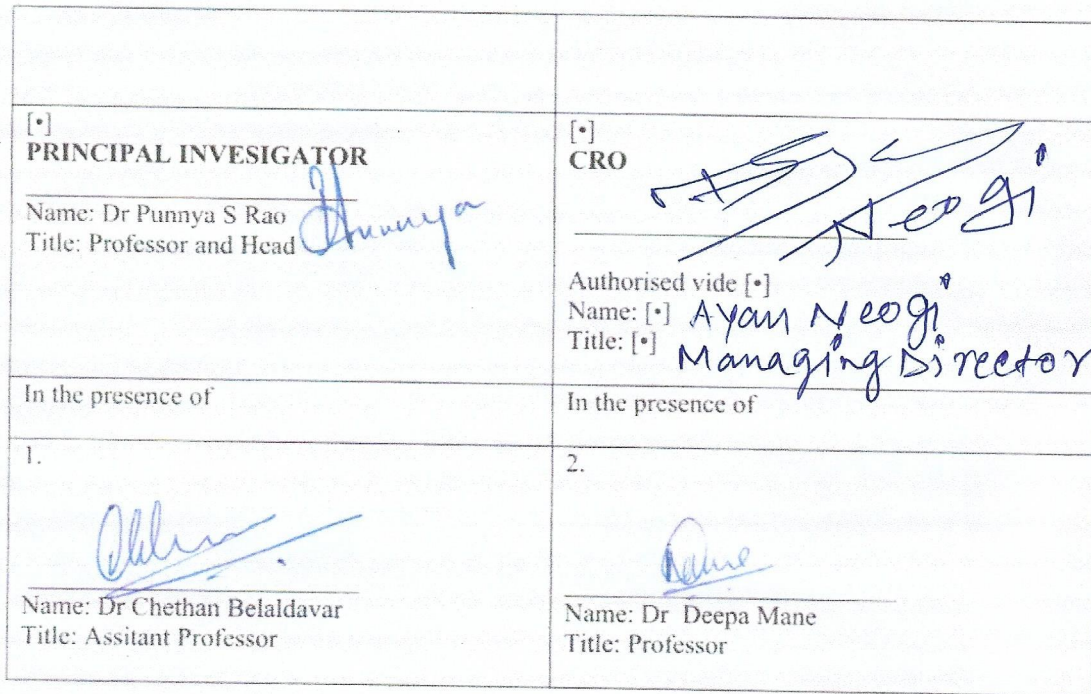 [•]
PRINCIPAL INVESIGATOR
Name: Dr Punnya S Rao
Title: Professor and Head
Punnya
[•]
CRO
Neogi
Authorised vide [•]
Name: [•] Ayan Neogi
Title: [•] Managing Director
In the presence of
In the presence of
1.
Name: Dr Chethan Belaldavar
Title: Assitant Professor
2.
Name: Dr Deepa Mane
Title: Professor